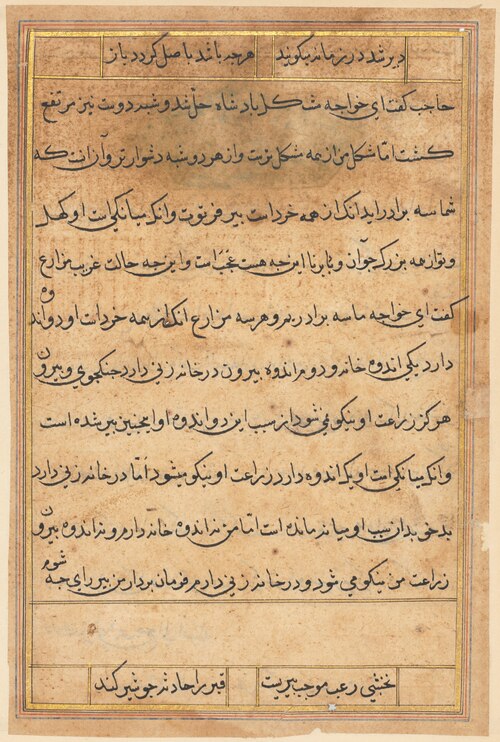 دیر شد در زمانه میکویند هر چه باشد باصل کردد باز
حاجب کفت ای خواجه مشکل پادشاه حل شد و شبه دوست نیز مرتفع
کشت اما مشکل من از همه مشکل ترست و از هر دو شبه دشوارتر و آن آنست که
شما سه برادراید انک از همه خردست پیر فرتوت و انک میانکی است او کهل
و تو از همه بزرک جوان و برنا این چه هست عجب است و این چه حالت غریب مزارع
کفت ای خواجه ما سه برادریم و هر سه مزارع انک از همه خردست او دو اندوه
دارد یکی اندوه خانه و دوم اندوه بیرون در خانه زنی دارد جنکجوی و بیرون
هرکز زراعت او نیکو نمی شود از سبب این دو اندوه او همچنین پیر شده است
و انک میانکی است او یک اندوه دارد زراعت او نیکو میشود اما در خانه زنی دارد
بدخو بدان سبب او میانه مانده است اما من نه اندوه خانه دارم و نه اندوه بیرون
زراعت من نیکو می شود و در خانه زنی دارم فرمان بردار من پیر برای چه شوم
نخشبی رعب موجب پیریست قیر را حادثه چو شیر کند